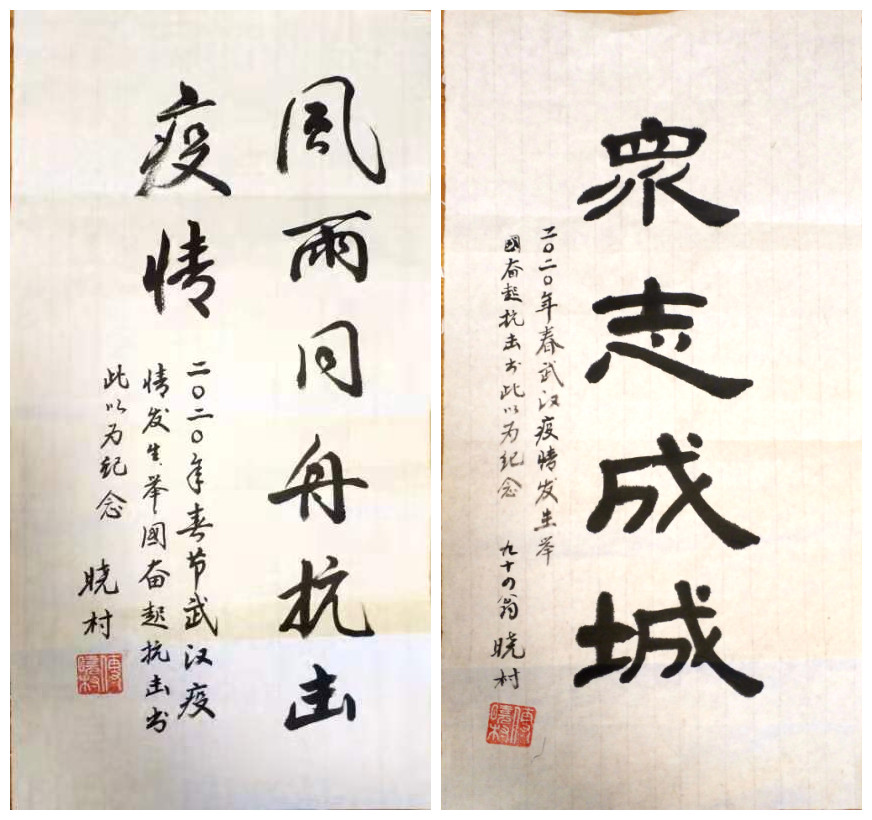 風雨同舟抗击
疫情
二〇二〇年春节武汉疫
情发生举國奋起抗击书
此以为纪念
晓村
眾志成城
二〇二〇年春武汉疫情发生举
國奋起抗击书此以为纪念 九十四翁 晓村